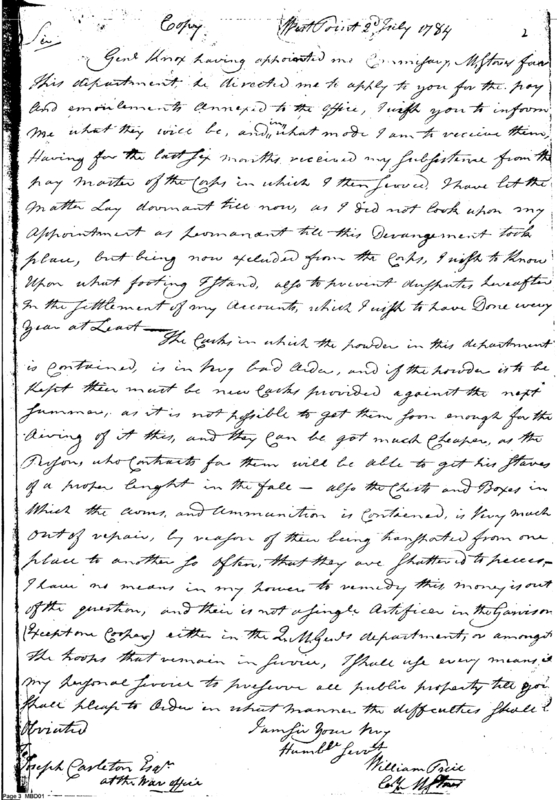 Copy West Point 2d July 1784 2
Sir
Genl Knox having appointed me Commissary My Stores for
This department, he directed me to apply to you for the pay
And emoluments Annexed to the office, I wish you to inform
me what they will be, and in what mode I am to receive them,
Having for the last six months, received my Subsistence from the
pay master of the Corps in which I then served, I have let the
Matter Lay dormant till now, as I did not look upon my
Appointment as permanant till this Derangement took
place, but being now excluded from the Corps, I wish to Know
Upon what footing I stand, also to prevent disputes hereafter
In the settlement of my Accounts, which I wish to have Done every
Year at Least —
The Casks in which the powder in this department
is contained, is in very bad Order, and if the powder is to be
Kept their must be new Casks provided against the next
Summer, as it is not possible to get them soon enough for the
Airing of it this, and they Can be got much Cheaper, as the
Persons who Contracts for them will be able to get his Staves
of a proper lenght in the fall — also the Chests and Boxes in
Which the arms, and Ammunition is Contained, is Very much
Out of repair, by reason of their being transported from one
place to another so often, that they are Shattered to pieces,
I have no means in my power to remedy this money is out
of the question, and their is not a single Artificer in the Garrison
(Except one Cooper) either in the Qr M Genls department, or amongst
The troops that remain in service, I shall use every means in
my personal service to preserve all public property till you
Shall please to Order in what manner the difficulties shall be
Obviated
I am Sir Your Very
Humble Servt
William Price
Com M Stores
To
Joseph Carleton Esqr
at the War office
Page 3 MBD01